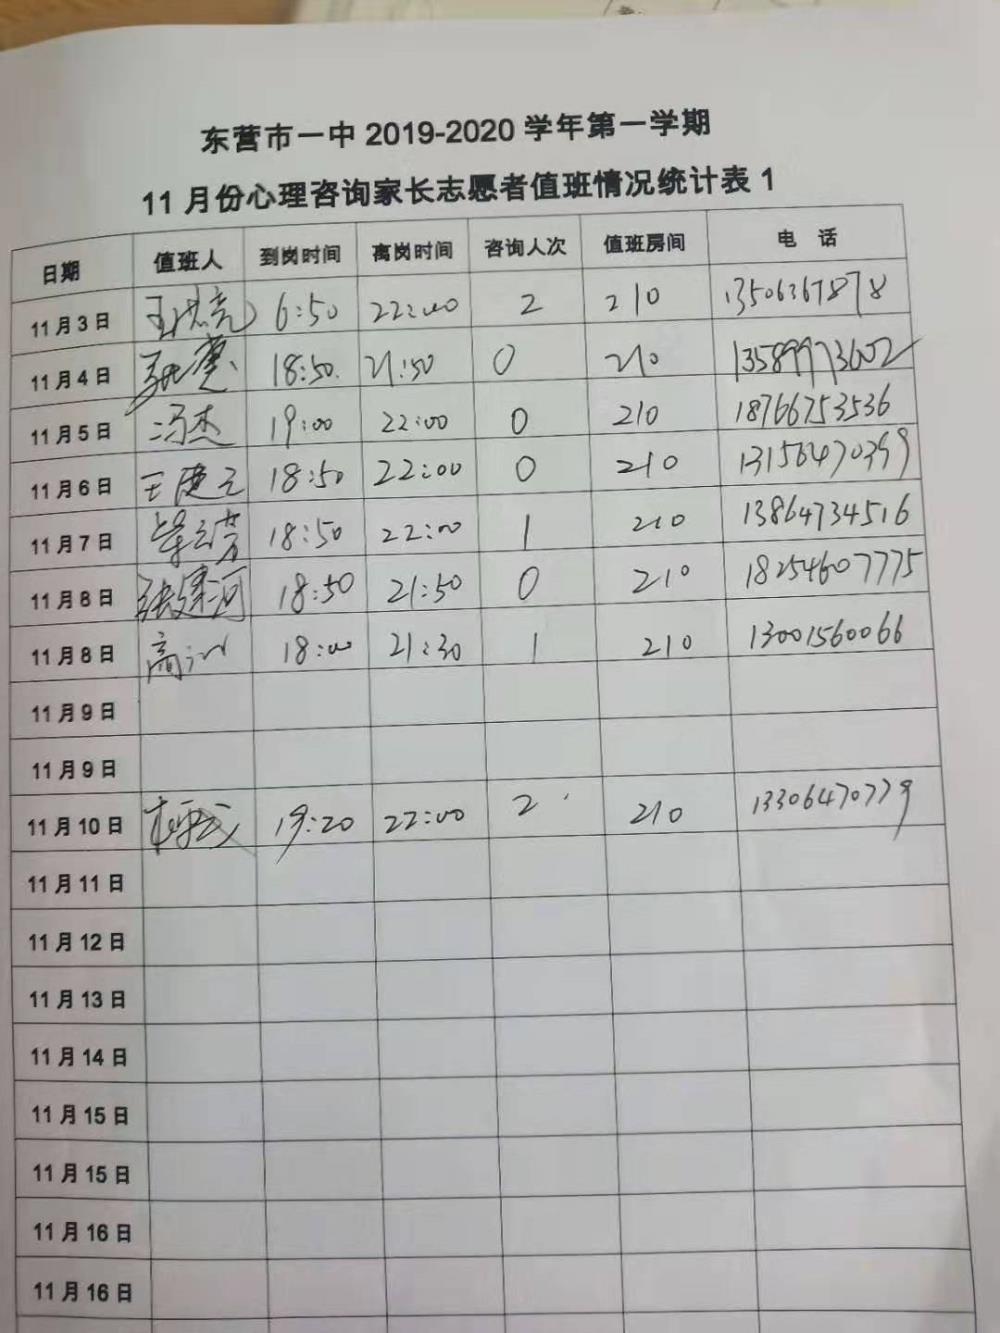 东营市一中 2019-2020 学年第一学期
11 月份心理咨询家长志愿者值班情况统计表 1
日期 值班人 到岗时间 离岗时间 咨询人次 值班房间 电 话
11 月 3 日 6:50 22:00 2 210 13506367878
11 月 4 日 18:50 21:50 0 210 13589973602
11 月 5 日 冯杰 19:00 22:00 0 210 18766753536
11 月 6 日 18:50 22:00 0 210 13156470399
11 月 7 日 18:50 22:00 1 210 13864734516
11 月 8 日 张建河 18:50 21:50 0 210 18254607775
11 月 8 日 18:00 21:30 1 210 13001560066
11 月 9 日
11 月 9 日
11 月 10 日 19:20 22:00 2 210 13306470779
11 月 11 日
11 月 12 日
11 月 13 日
11 月 14 日
11 月 15 日
11 月 15 日
11 月 16 日
11 月 16 日